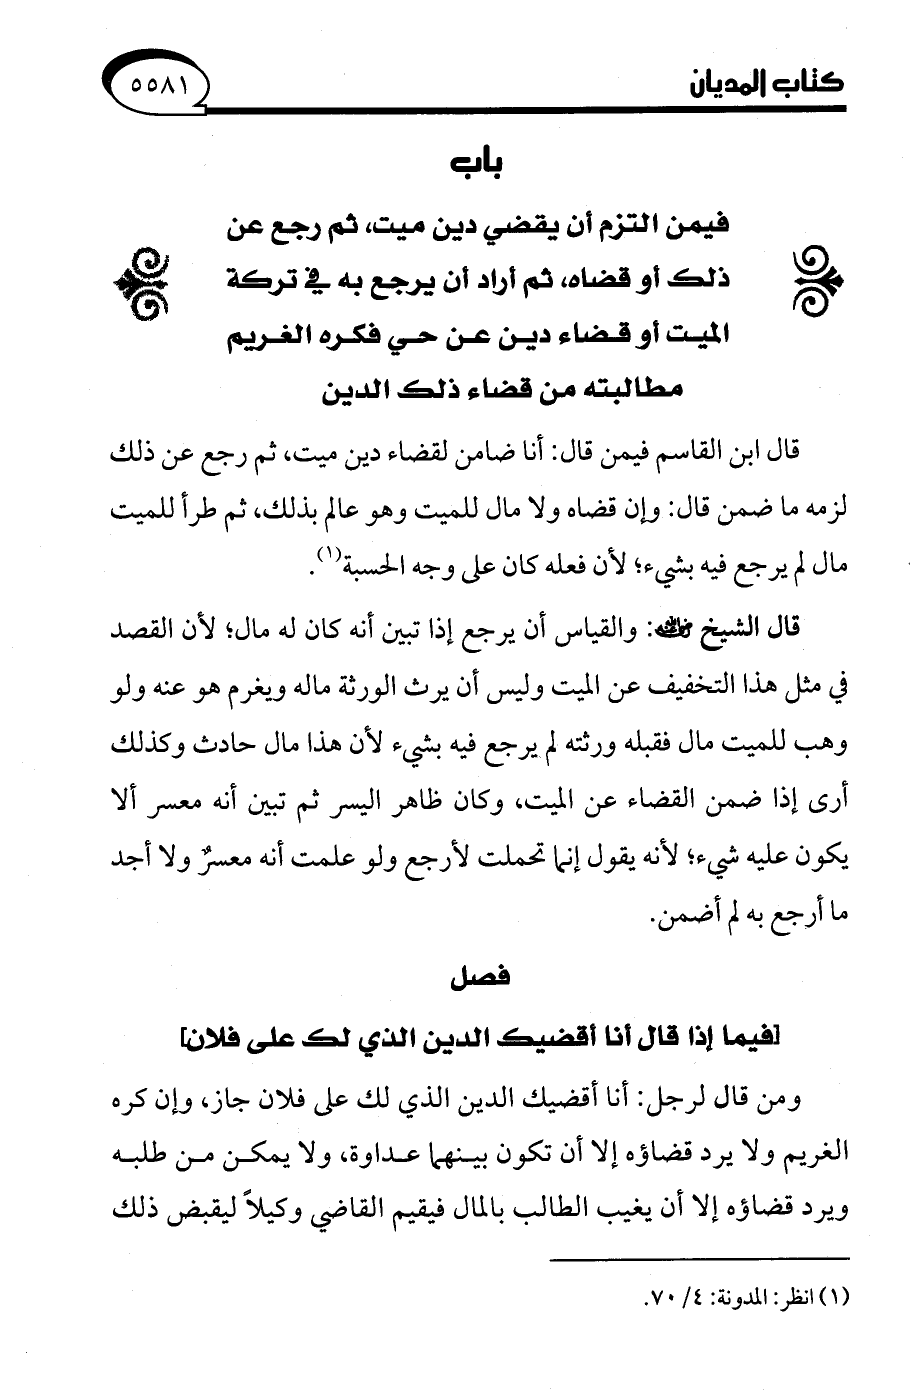 كتاب المديان
٥٥٨١
باب
فيمن التزم أن يقضي دين ميت، ثم رجع عن
ذلك أو قضاه، ثم أراد أن يرجع به في تركة
الميت أو قضاء دين عن حي فكره الغريم
مطالبته من قضاء ذلك الدين
قال ابن القاسم فيمن قال: أنا ضامن لقضاء دين ميت، ثم رجع عن ذلك
لزمه ما ضمن قال: وإن قضاه ولا مال للميت وهو عالم بذلك، ثم طرأ للميت
مال لم يرجع فيه بشيء؛ لأن فعله كان على وجه الحسبة(١).
قال الشيخ رضي الله عنه: والقياس أن يرجع إذا تبين أنه كان له مال؛ لأن القصد
في مثل هذا التخفيف عن الميت وليس أن يرث الورثة ماله ويغرم هو عنه ولو
وهب للميت مال فقبله ورثته لم يرجع فيه بشيء لأن هذا مال حادث وكذلك
أرى إذا ضمن القضاء عن الميت، وكان ظاهر اليسر ثم تبين أنه معسر ألا
يكون عليه شيء؛ لأنه يقول إنما تحملت لأرجع ولو علمت أنه معسرٌ ولا أجد
ما أرجع به لم أضمن.
فصل
[فيما إذا قال أنا أقضيك الدين الذي لك على فلان]
ومن قال لرجل: أنا أقضيك الدين الذي لك على فلان جاز، وإن كره
الغريم ولا يرد قضاؤه إلا أن تكون بينهما عداوة، ولا يمكن من طلبه
ويرد قضاؤه إلا أن يغيب الطالب بالمال فيقيم القاضي وكيلاً ليقبض ذلك
(١) انظر: المدونة: ٤/ ٧٠.